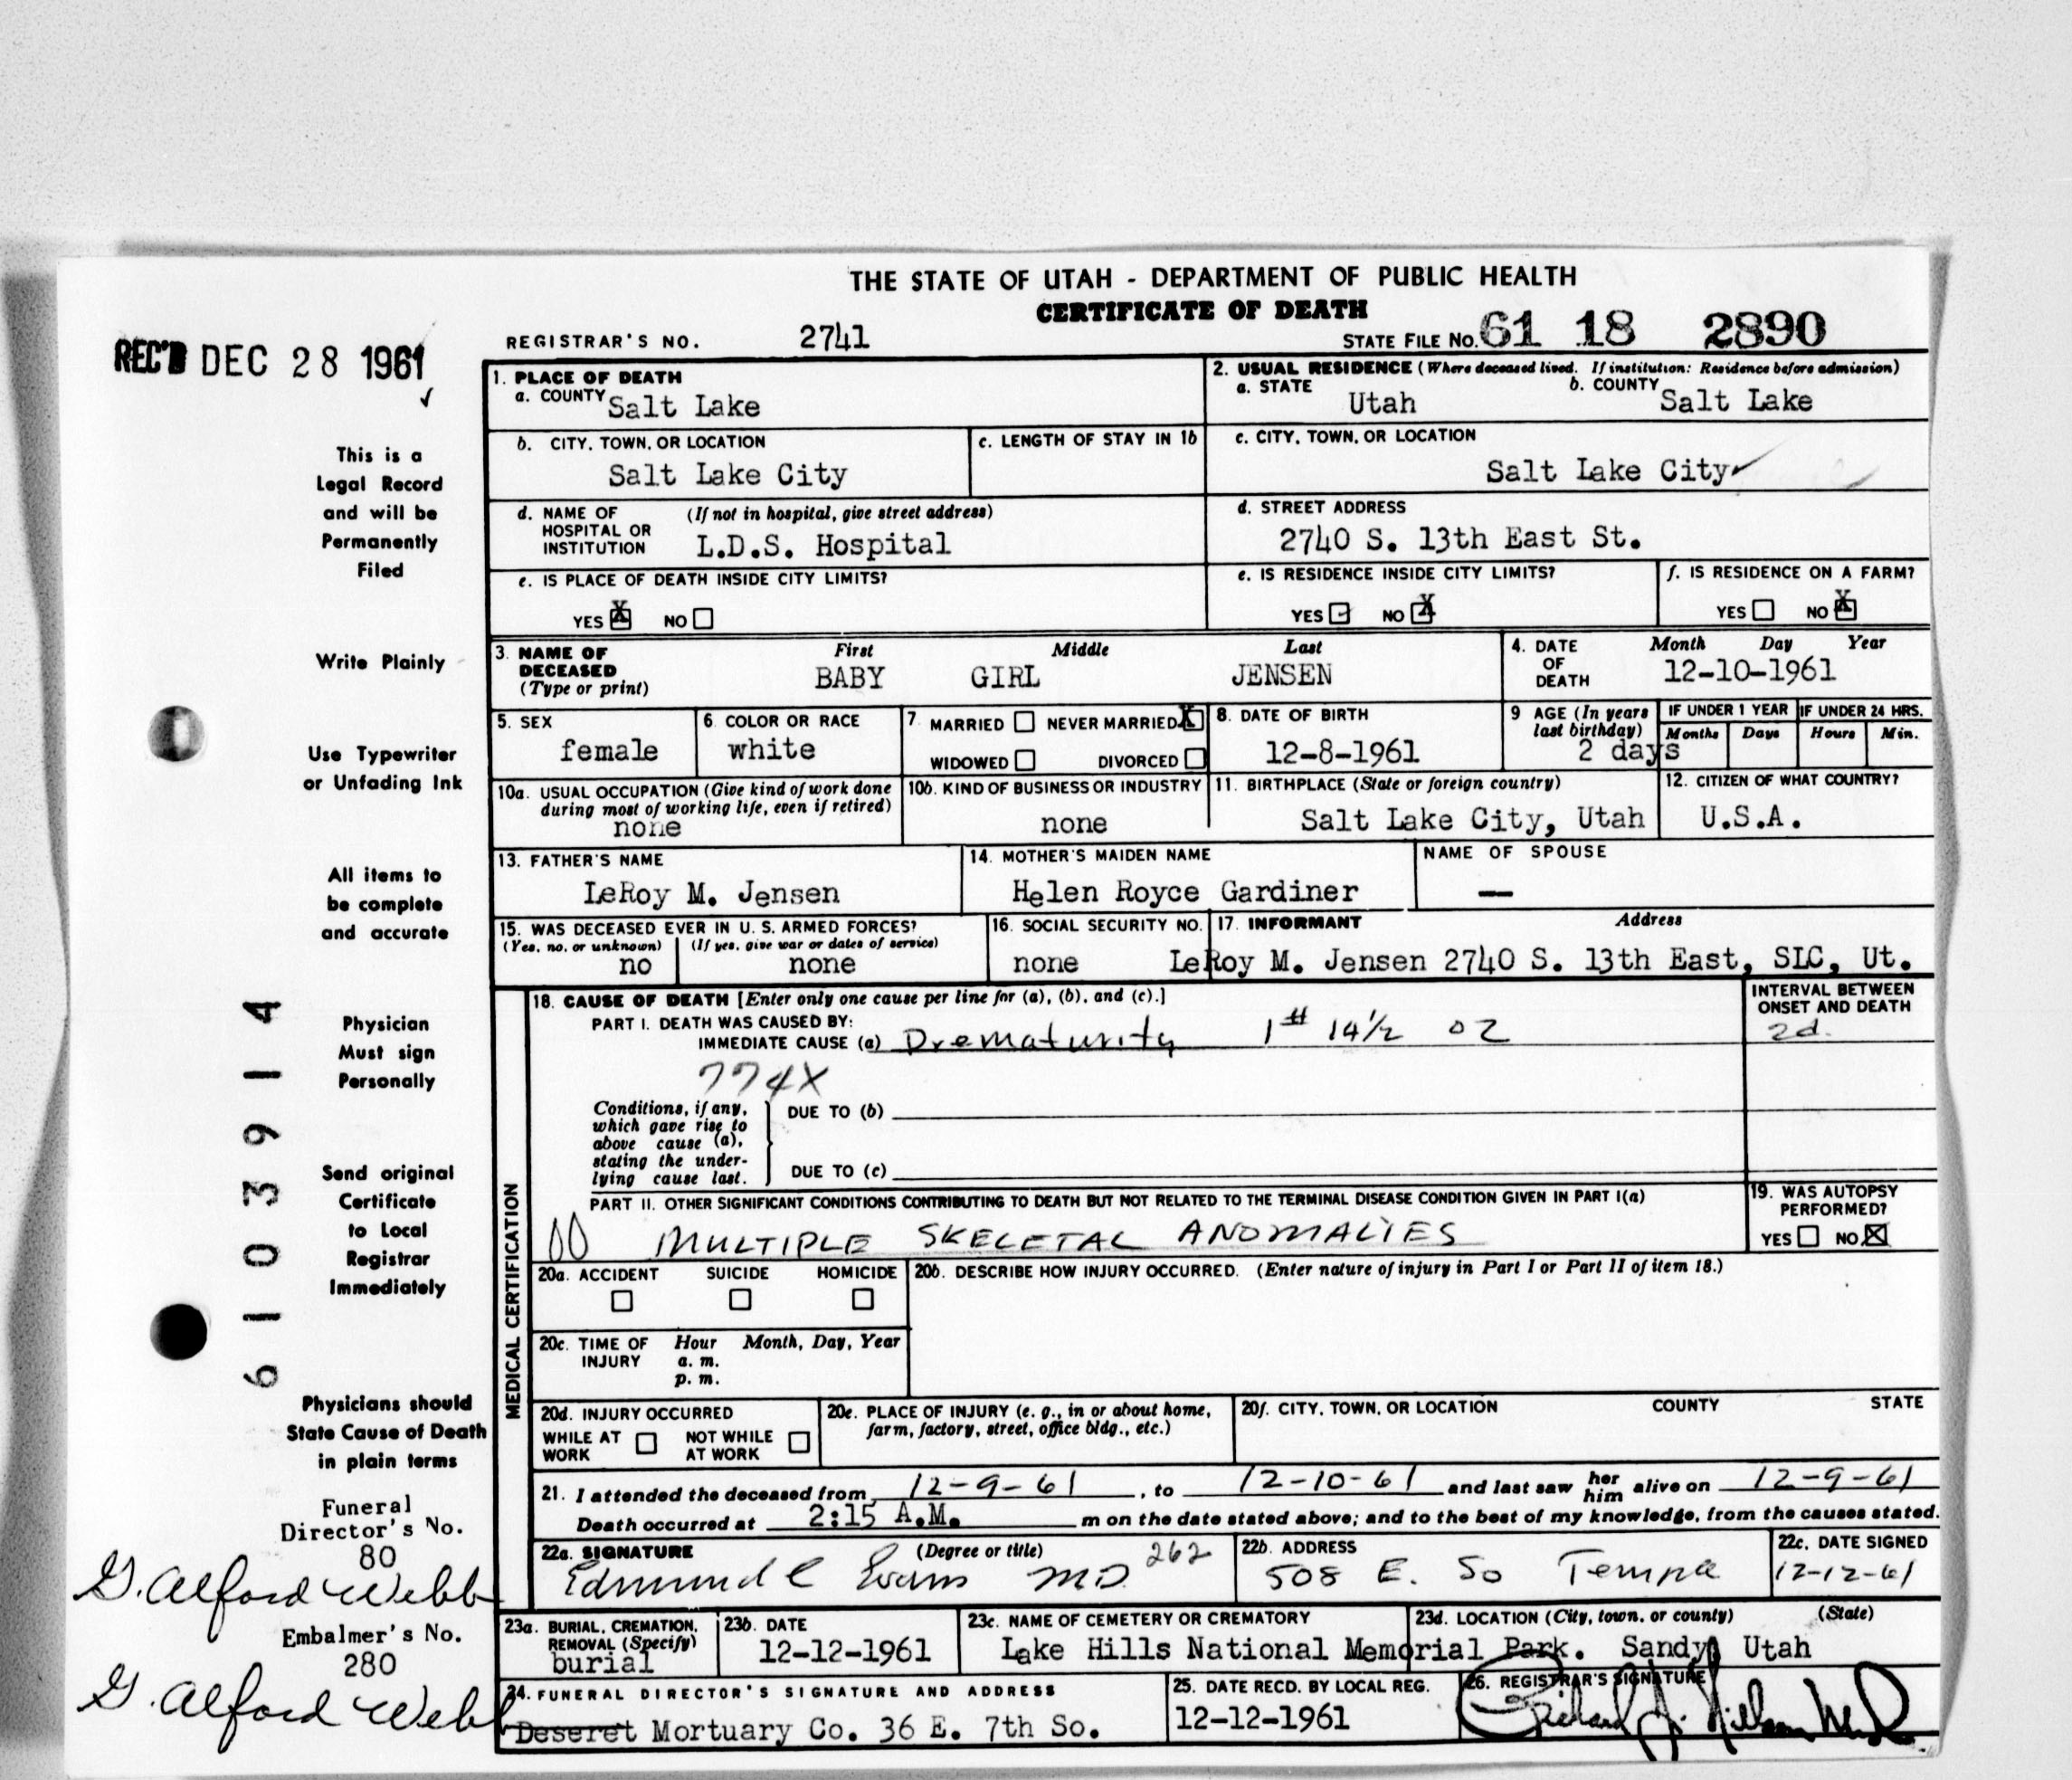 THE STATE OF UTAH - DEPARTMENT OF PUBLIC HEALTH
CERTIFICATE OF DEATH
REGISTRAR'S NO. 2741 STATE FILE NO. 61 18 2890
REC'D DEC 28 1961
1. PLACE OF DEATH
a. COUNTY Salt Lake
2. USUAL RESIDENCE (Where deceased lived. If institution: Residence before admission)
a. STATE Utah b. COUNTY Salt Lake
b. CITY, TOWN, OR LOCATION Salt Lake City
c. LENGTH OF STAY IN 1b
c. CITY, TOWN, OR LOCATION
Salt Lake City
d. NAME OF HOSPITAL OR INSTITUTION (If not in hospital, give street address)
L.D.S. Hospital
d. STREET ADDRESS
2740 S. 13th East St.
e. IS PLACE OF DEATH INSIDE CITY LIMITS?
YES X NO
e. IS RESIDENCE INSIDE CITY LIMITS?
YES NO X
f. IS RESIDENCE ON A FARM?
YES NO X
3. NAME OF DECEASED (Type or print)
First Middle Last
BABY GIRL JENSEN
4. DATE OF DEATH Month Day Year
12-10-1961
5. SEX
female
6. COLOR OR RACE
white
7. MARRIED NEVER MARRIED X
WIDOWED DIVORCED
8. DATE OF BIRTH
12-8-1961
9 AGE (In years last birthday)
2 days
IF UNDER 1 YEAR IF UNDER 24 HRS.
Months Days Hours Min.
10a. USUAL OCCUPATION (Give kind of work done during most of working life, even if retired)
none
10b. KIND OF BUSINESS OR INDUSTRY
none
11. BIRTHPLACE (State or foreign country)
Salt Lake City, Utah
12. CITIZEN OF WHAT COUNTRY?
U.S.A.
13. FATHER'S NAME
LeRoy M. Jensen
14. MOTHER'S MAIDEN NAME
Helen Royce Gardiner
NAME OF SPOUSE
—
15. WAS DECEASED EVER IN U. S. ARMED FORCES?
(Yes, no, or unknown) (If yes, give war or dates of service)
no none
16. SOCIAL SECURITY NO.
none
17. INFORMANT Address
LeRoy M. Jensen 2740 S. 13th East, SLC, Ut.
MEDICAL CERTIFICATION
18. CAUSE OF DEATH [Enter only one cause per line for (a), (b), and (c).]
INTERVAL BETWEEN ONSET AND DEATH
PART I. DEATH WAS CAUSED BY:
IMMEDIATE CAUSE (a) Prematurity 1# 14½ oz 2d.
774X
Conditions, if any, which gave rise to above cause (a), stating the underlying cause last.
DUE TO (b)
DUE TO (c)
PART II. OTHER SIGNIFICANT CONDITIONS CONTRIBUTING TO DEATH BUT NOT RELATED TO THE TERMINAL DISEASE CONDITION GIVEN IN PART I(a)
MULTIPLE SKELETAL ANOMALIES
19. WAS AUTOPSY PERFORMED?
YES NO X
20a. ACCIDENT SUICIDE HOMICIDE
20b. DESCRIBE HOW INJURY OCCURRED. (Enter nature of injury in Part I or Part II of item 18.)
20c. TIME OF INJURY Hour Month, Day, Year
a. m.
p. m.
20d. INJURY OCCURRED
WHILE AT WORK NOT WHILE AT WORK
20e. PLACE OF INJURY (e. g., in or about home, farm, factory, street, office bldg., etc.)
20f. CITY, TOWN, OR LOCATION COUNTY STATE
21. I attended the deceased from 12-9-61, to 12-10-61 and last saw her him alive on 12-9-61
Death occurred at 2:15 A.M. m on the date stated above; and to the best of my knowledge, from the causes stated.
22a. SIGNATURE (Degree or title) 262
Edmund C Evans MD
22b. ADDRESS
508 E. So Temple
22c. DATE SIGNED
12-12-61
23a. BURIAL, CREMATION, REMOVAL (Specify)
burial
23b. DATE
12-12-1961
23c. NAME OF CEMETERY OR CREMATORY
23d. LOCATION (City, town, or county) (State)
Lake Hills National Memorial Park. Sandy, Utah
24. FUNERAL DIRECTOR'S SIGNATURE AND ADDRESS
Deseret Mortuary Co. 36 E. 7th So.
25. DATE RECD. BY LOCAL REG.
12-12-1961
26. REGISTRAR'S SIGNATURE
This is a
Legal Record
and will be
Permanently
Filed
Write Plainly
Use Typewriter
or Unfading Ink
All items to
be complete
and accurate
Physician
Must sign
Personally
Send original
Certificate
to Local
Registrar
Immediately
Physicians should
State Cause of Death
in plain terms
6 1 0 3 9 1 4
Funeral
Director's No.
80
G. Alford Webb
Embalmer's No.
280
G. Alford Webb